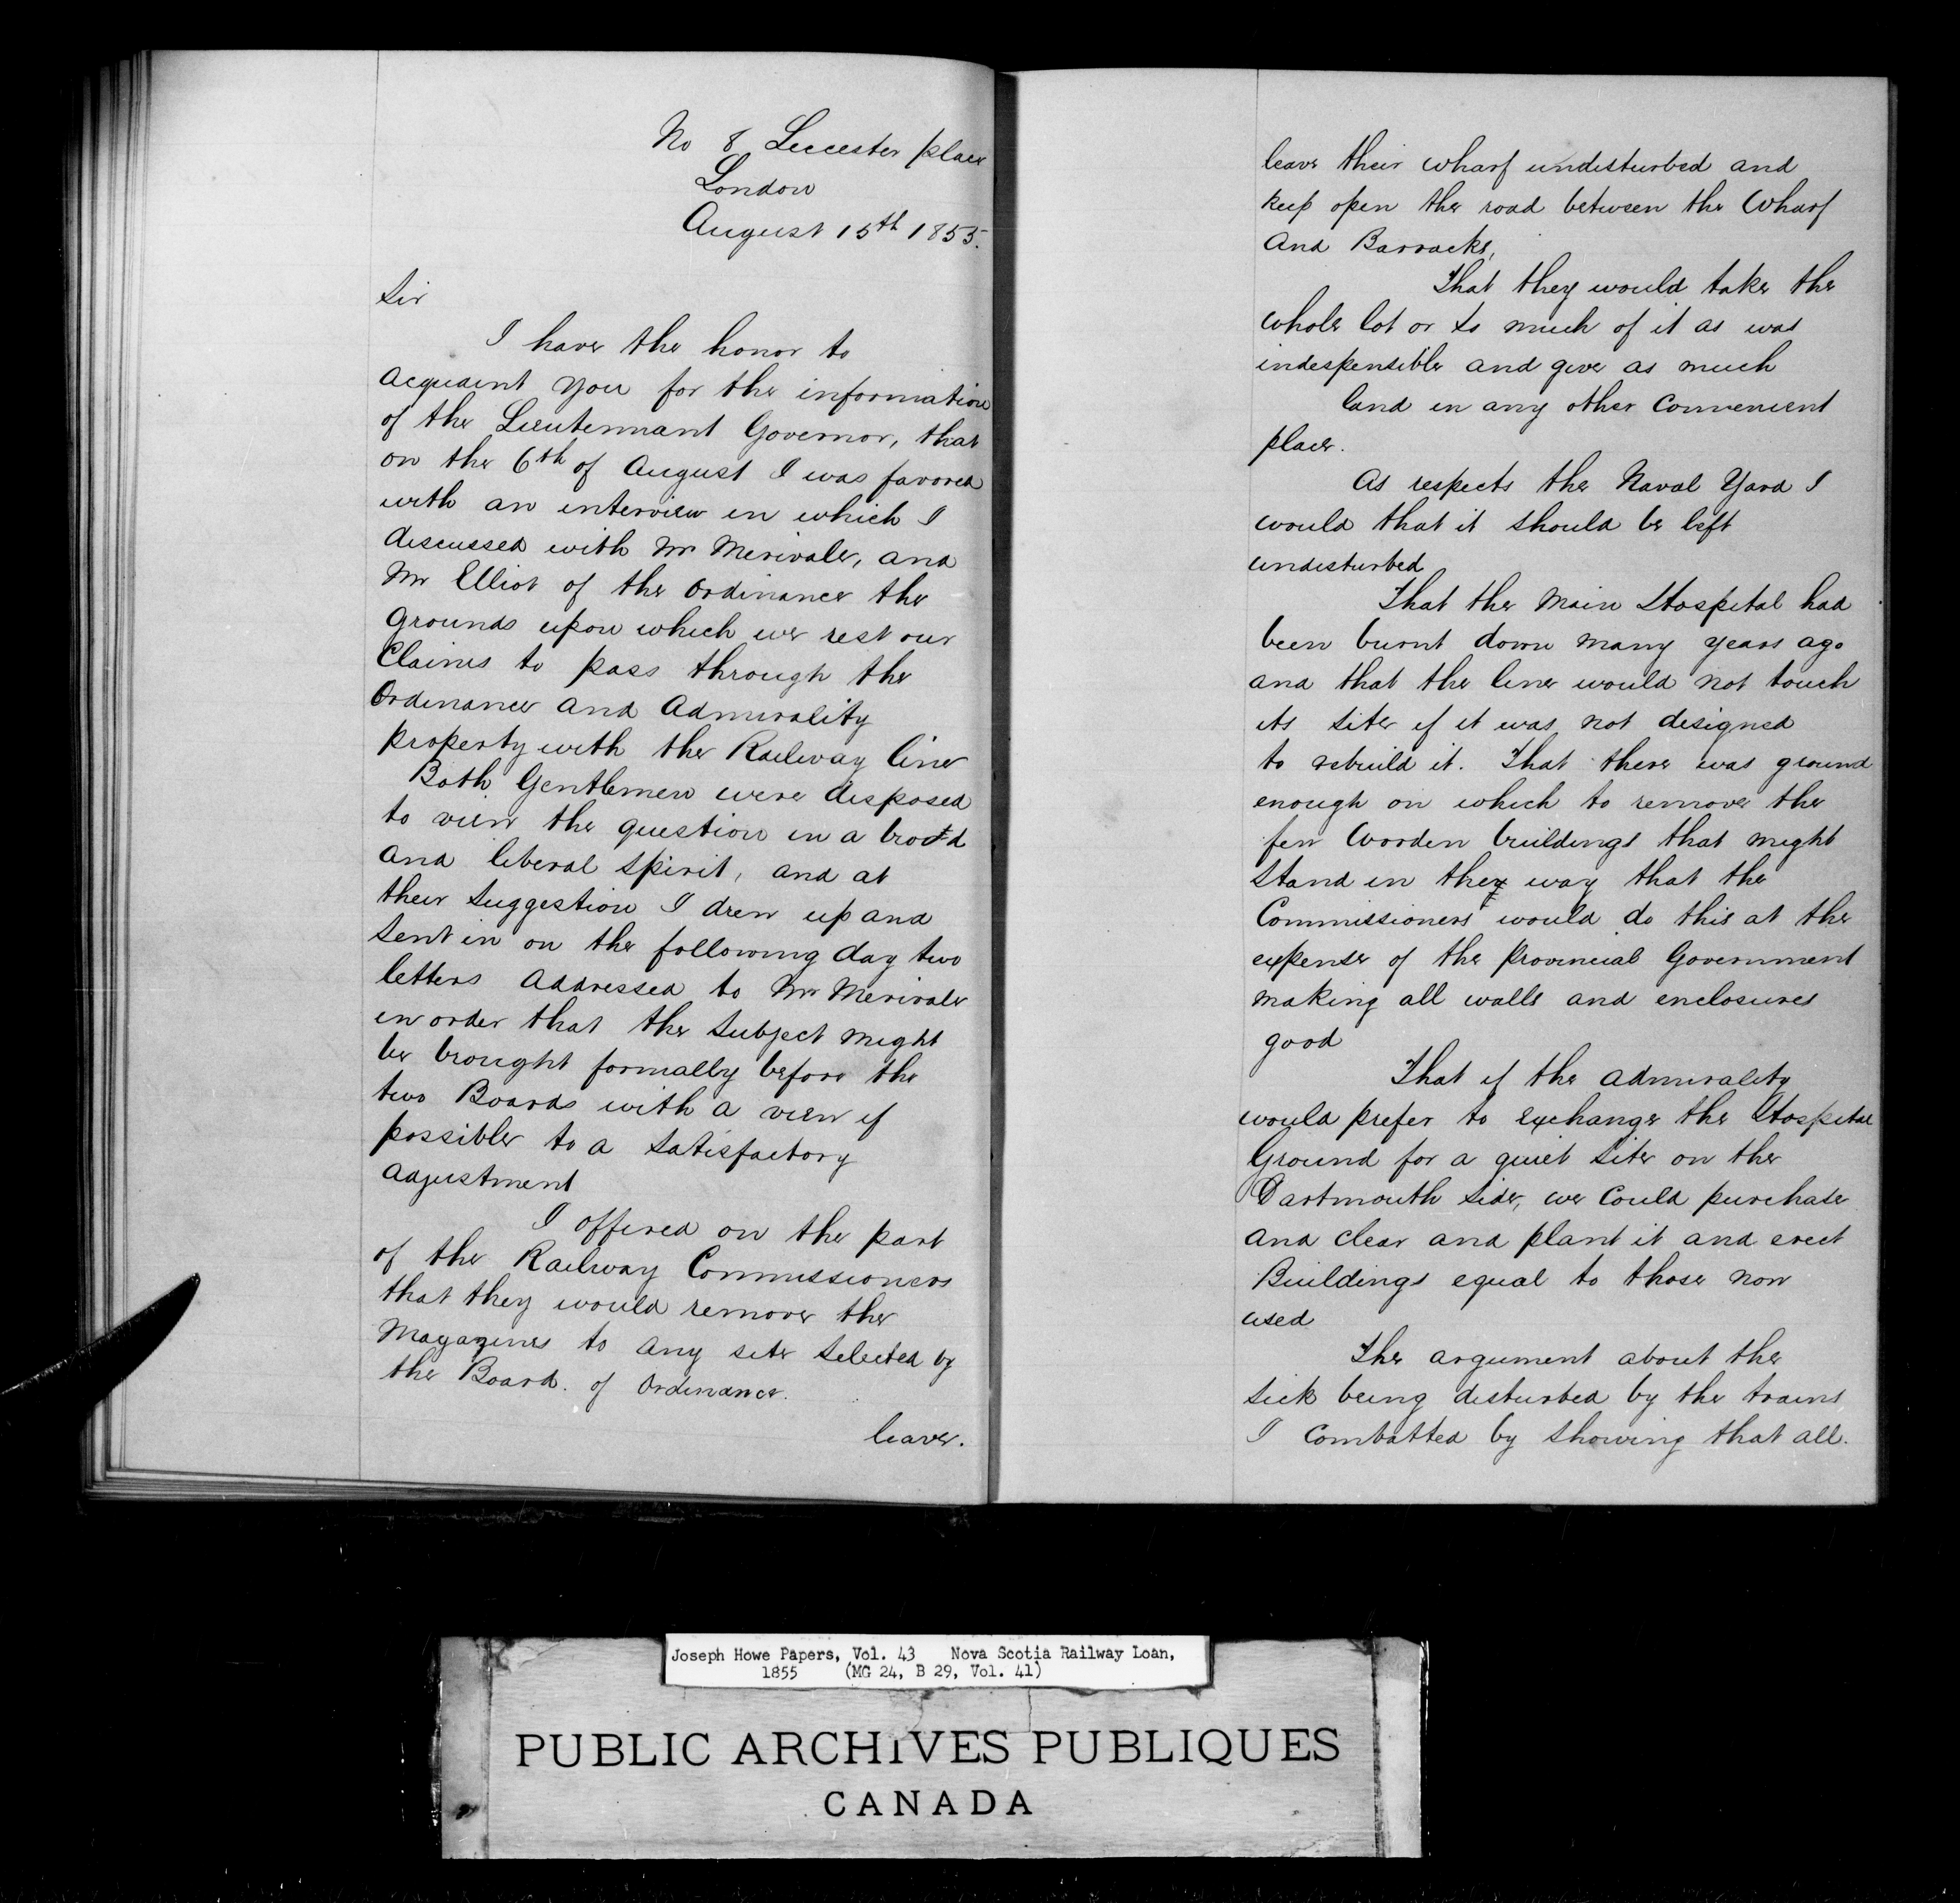 No 8 Leccester place
London
August 15th 1855.
Sir
I have the honor to
acquaint you for the information
of the Lieutennant Governor, that
on the 6th of August I was favored
with an interview in which I
discussed with Mr Merivale, and
Mr Elliot of the Ordinance the
Grounds upon which we rest our
Claims to pass through the
Ordinance and Admirality
property with the Railway line
Both Gentlemen were disposed
to view the question in a broad
and liberal spirit, and at
their suggestion I drew up and
sent in on the following day two
letters addressed to Mr Merivale
in order that the subject might
be brought formally before the
two Boards with a view if
possible to a satisfactory
adjustment
I offered on the part
of the Railway Commissioners
that they would remove the
Magazines to any site selected by
the Board. of Ordinance.
leave.
leave their wharf undisturbed and
keep open the road between the Wharf
and Barracks,
That they would take the
whole lot or so much of it as was
indespensible and give as much
land in any other Convenient
place.
As respects the Naval Yard I
would that it should be left
undisturbed
That the Main Hospital had
been burnt down many years ago
and that the line would not touch
its site if it was not designed
to rebuild it. That there was ground
enough on which to remove the
few Wooden buildings that might
stand in they way that the
Commissioners would do this at the
expense of the Provincial Government
making all walls and enclosures
good
That if the Admirality
would prefer to exchange the Hospital
Ground for a quiet site on the
Dartmouth side, we could purchase
and clear and plant it and erect
Buildings equal to those now
used
The argument about the
sick being disturbed by the trains
I combatted by showing that all.
Joseph Howe Papers, Vol. 43 Nova Scotia Railway Loan,
1855 (MG 24, B 29, Vol. 41)
PUBLIC ARCHIVES PUBLIQUES
CANADA